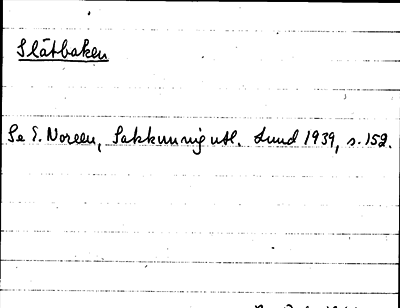 Slätbaken
Se E. Noreen, Sakkunnig utl. Lund 1939, s. 152.